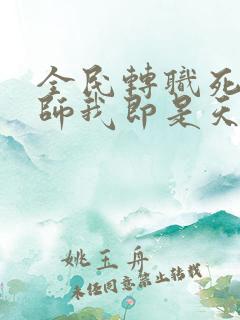 全民轉職死
師我即是天
姚玉舟
未經同意禁止轉載